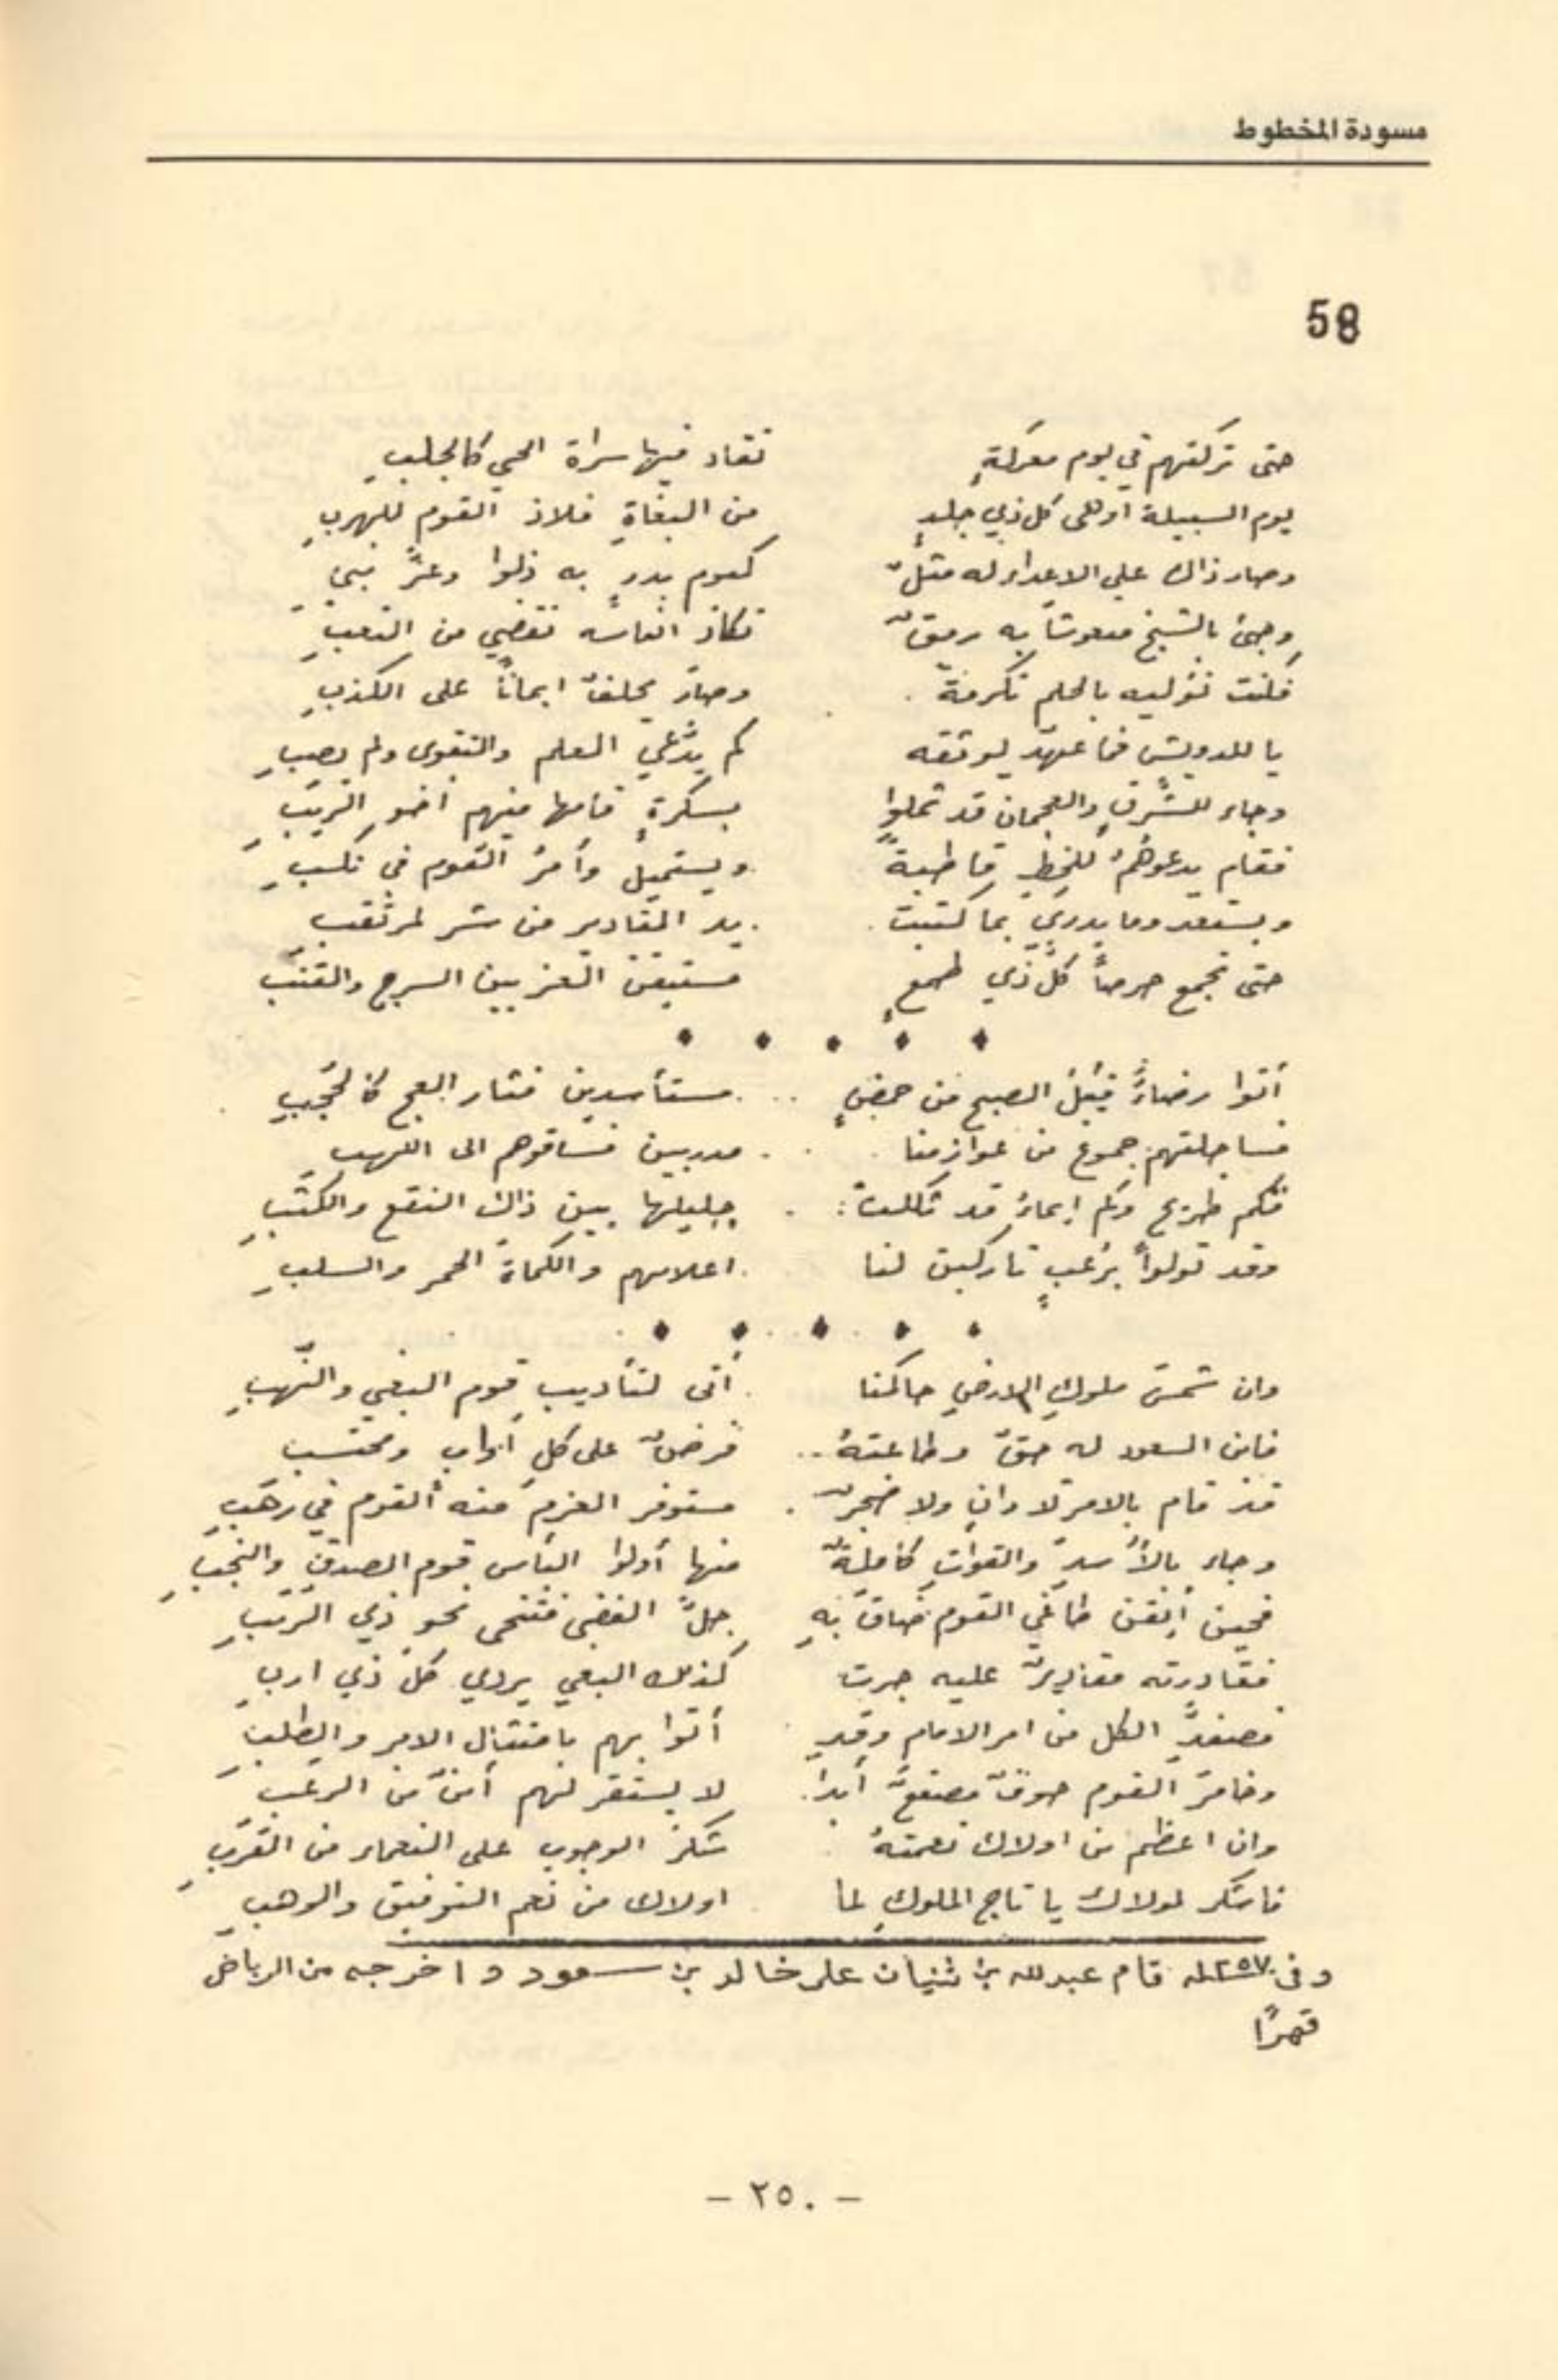 مسودة المخطوط
58
حتى تركتهم في يوم معركةٍ تقاد فيها سراة الحي كالجلبِ
يوم السبيلة أوهى كل ذي جلدٍ من البغاةِ فلاذ القوم للهربِ
وصار ذاك على الاعداء له مثلٌ كيوم بدرٍ به ذلوا وعزَّ نبي
وجئ بالشيخ منعوشاً به رمقٌ تكاد انفاسه تقضي من التعبِ
فكنت توليه بالحلم تكرمةً وصار يحلف ايماناً على الكذبِ
يا للدويش فما عهد يوثقه كم يدَّعي العلم والتقوى ولم يصبِ
وجاء للشرق والعجمان قد ثملوا بسكرةٍ قامها منهم أخو الريبِ
فقام يدعوهمُ للخطِ قاطبةً ويستميل وأمرُ القوم في نكسبِ
ويستعد وما يدري بما كتبت يد المقادير من شر لمرتقبِ
حتى تجمع حرصاً كلُّ ذي طمعٍ مستيقن العز بين السرج والقتبِ
أتوا رضاءً قبيل الصبح من حمضٍ مستأسدين فثار العج كالحجبِ
فساجلتهم جموع من عوازمنا مدربين فساقوهم الى اللهبِ
فكم طريح وكم إيماءُ قد ثكلت جليلها بين ذاك النقع والكثبِ
وقد تولواً برعبٍ تاركين لنا اعلامهم والكماة الحمر والسلبِ
وان شمسَ ملوكِ الارضِ حاكمنا أتى لتأديبِ قومِ البغي والنهبِ
فابن السعود له حقٌ وطاعتهُ فرضٌ على كلِ أوابٍ ومحتسب
قد قام بالامر لا وانٍ ولا ضجرٌ مستوفر العزم منه القوم في رهَبِ
وجاء بالأُسدِ والقواتِ كاملةً منها أولوا البأس قوم الصدقِ والنجبِ
فحين أيقن طاغي القوم ضاقَ بهِ جلُّ الفضى فتنحى نحو ذي الرتبِ
فغادرته مقاديرٌ عليه جرت كذلك البغي يردي كلَّ ذي اربِ
فصفد الكل من امر الامامِ وقد أتوا بهم بامتثالِ الامر والطلبِ
وخامرَ القوم خوفٌ مصقعٌ أبدا لا يستقر لهم أمنٌ من الرعبِ
وان اعظم من اولاك نعمتهُ شكرُ الوجوبِ على النعماء من القربِ
فاشكر لمولاك يا تاج الملوكِ لما اولاك من نعم التوفيق والوهبِ
وفي ١٢٥٧ه قام عبدلله بن ثنيان على خالد بن سعود واخرجه من الرياض
قهرًا
- ٢٥٠ -